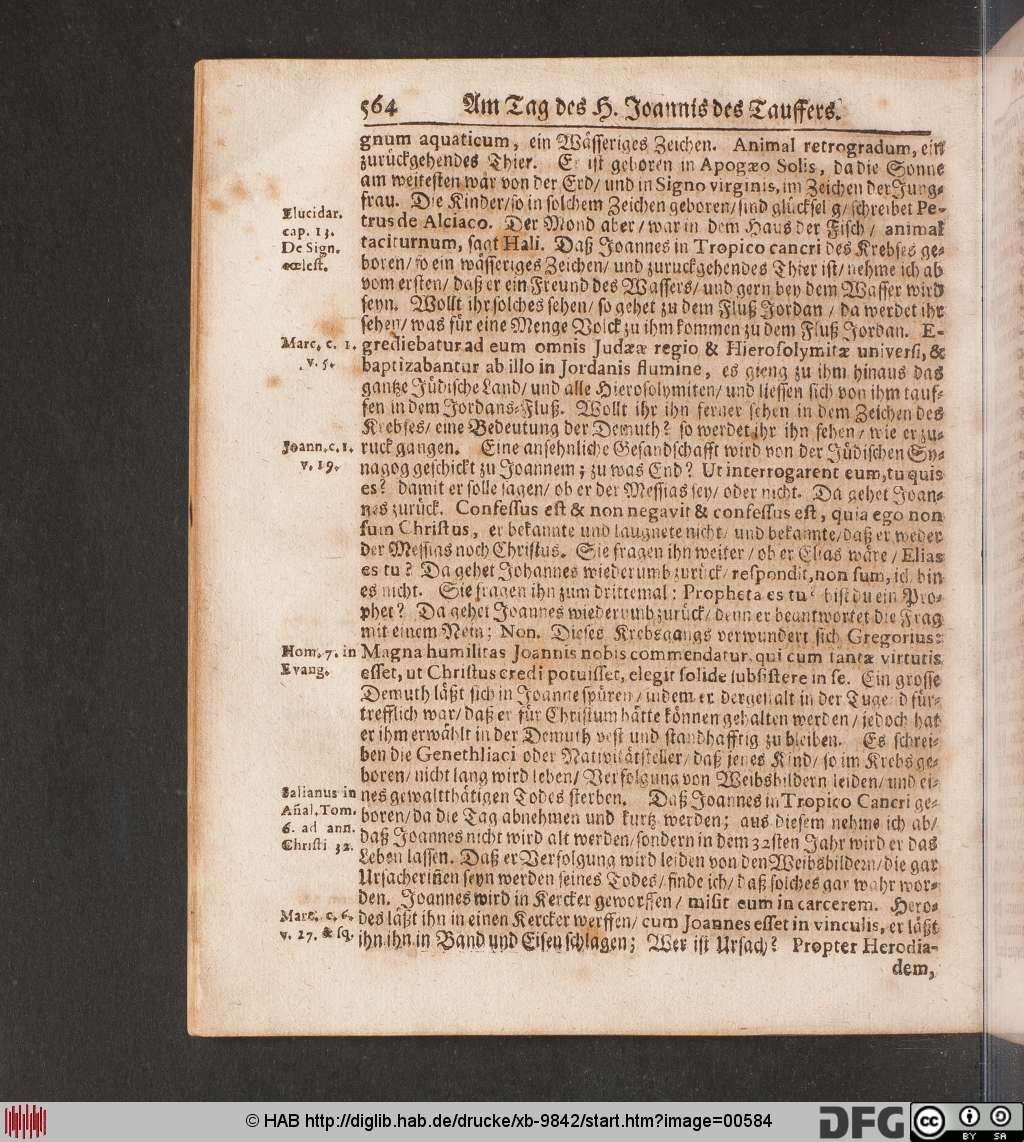 564 Am Tag des H. Joannis des Tauffers.
gnum aquaticum, ein Wässeriges Zeichen. Animal retrogradum, ein
zurückgehendes Thier. Er ist geboren in Apogæo Solis, da die Sonne
am weitesten war von der Erd/ und in Signo virginis, im Zeichen der Jung-
frau. Die Kinder/ so in solchem Zeichen geboren/ sind glückselig/ schreibet Pe-
Elucidar.
cap. 13.
De Sign.
cœlest.
trus de Alciaco. Der Mond aber/ war in dem Haus der Fisch/ animal
taciturnum, sagt Hali. Daß Joannes in Tropico cancri des Krebses ge-
boren/ so ein wässeriges Zeichen/ und zuruckgehendes Thier ist/ nehme ich ab
vom ersten/ daß er ein Freund des Wassers/ und gern bey dem Wasser wird
seyn. Wollt ihr solches sehen/ so gehet zu dem Fluß Jordan/ da werdet ihr
sehen/ was für eine Menge Volck zu ihm kommen zu dem Fluß Jordan. E-
Marc. c. 1.
v. 5.
grediebatur ad eum omnis Judææ regio & Hierosolymitæ universi, &
baptizabantur ab illo in Jordanis flumine, es gieng zu ihm hinaus das
gantze Jüdische Land/ und alle Hierosolymiten/ und liessen sich von ihm tauf-
fen in dem Jordans-Fluß. Wollt ihr ihn ferner sehen in dem Zeichen des
Krebses/ eine Bedeutung der Demuth? so werdet ihr ihn sehen/ wie er zu-
Joann. c. 1.
v. 19.
ruck gangen. Eine ansehnliche Gesandschafft wird von der Jüdischen Sy-
nagog geschickt zu Joannem; zu was End? Ut interrogarent eum, tu quis
es? damit er solle sagen/ ob er der Messias sey/ oder nicht. Da gehet Joan-
nes zurück. Confessus est & non negavit & confessus est, quia ego non
sum Christus, er bekannte und laugnete nicht/ und bekannte/ daß er weder
der Messias noch Christus. Sie fragen ihn weiter/ ob er Elias wäre/ Elias
es tu? Da gehet Johannes wiederumb zurück/ respondit, non sum, ich bin
es nicht. Sie fragen ihn zum drittemal: Propheta es tu? bist du ein Pro-
phet? Da gehet Joannes wiederumb zurück/ denn er beantwortet die Frag
mit einem Nein; Non. Dieses Krebsgangs verwundert sich Gregorius:
Hom. 7. in
Evang.
Magna humilitas Joannis nobis commendatur, qui cum tantæ virtutis
esset, ut Christus credi potuisset, elegit solide subsistere in se. Ein grosse
Demuth läßt sich in Joanne spüren/ indem er dergestalt in der Tugend für-
trefflich war/ daß er für Christum hätte können gehalten werden/ jedoch hat
er ihm erwählt in der Demuth vest und standhafftig zu bleiben. Es schrei-
ben die Genethliaci oder Nativitätsteller/ daß jenes Kind/ so im Krebs ge-
boren/ nicht lang wird leben/ Verfolgung von Weibsbildern leiden/ und ei-
Salianus in
Añal. Tom.
6. ad ann.
Christi 32.
nes gewaltthätigen Todes sterben. Daß Joannes in Tropico Cancri ge-
boren/ da die Tag abnehmen und kurtz werden; aus diesem nehme ich ab/
daß Joannes nicht wird alt werden/ sondern in dem 32sten Jahr wird er das
Leben lassen. Daß er Verfolgung wird leiden von den Weibsbildern/ die gar
Ursacheriñen seyn werden seines Todes/ finde ich/ daß solches gar wahr wor-
den. Joannes wird in Kercker geworffen/ misit eum in carcerem. Hero-
Marc. c. 6.
v. 17. & sq.
des läßt ihn in einen Kercker werffen/ cum Joannes esset in vinculis, er läßt
ihn ihn in Band und Eisen schlagen; Wer ist Ursach? Propter Herodia-
dem,
© HAB http://diglib.hab.de/drucke/xb-9842/start.htm?image=00584
DFG
cc BY SA